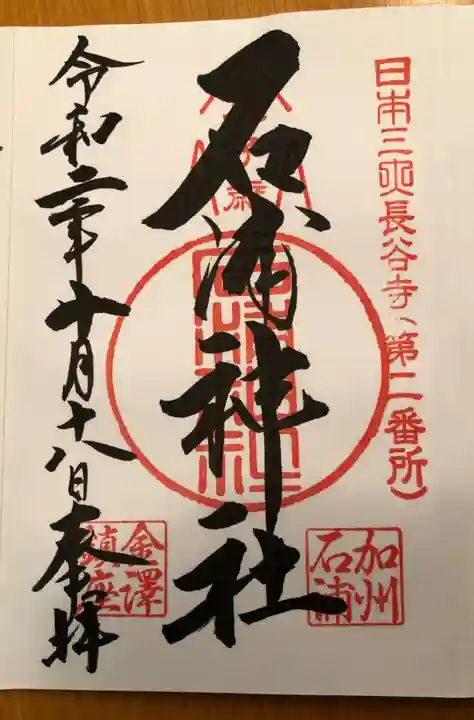 日本三所長谷寺(第二番所)
石浦神社
加州
石浦
令和二年十月十八日奉拝
金澤
鎮座